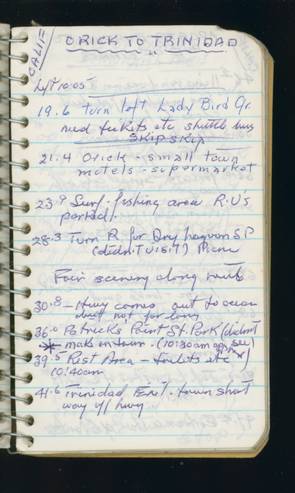 CALIF
ORICK TO TRINIDAD
Lft 10:05
19.6 turn left Lady Bird Gr
need tickets etc shuttle bus
SKIP SKIP
21.4 Orick - small town
motels - supermarket
23.9 Surf-fishing area R.V's
parked.
28.3 Turn R for Dry Lagoon SP
(didn't visit)
Fair scenery along
30.8 - Hwy comes out to ocean
but not for long
36.0 Patricks Point St. Park (didn't
10:30am
39.5 Rest Area - toilets etc
10:40am
41.6 Trinidad Exit. town short
way off hwy